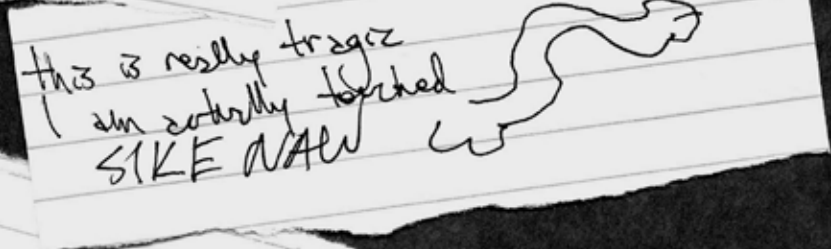 this is really tragic
I am actually touched
SIKE NAW